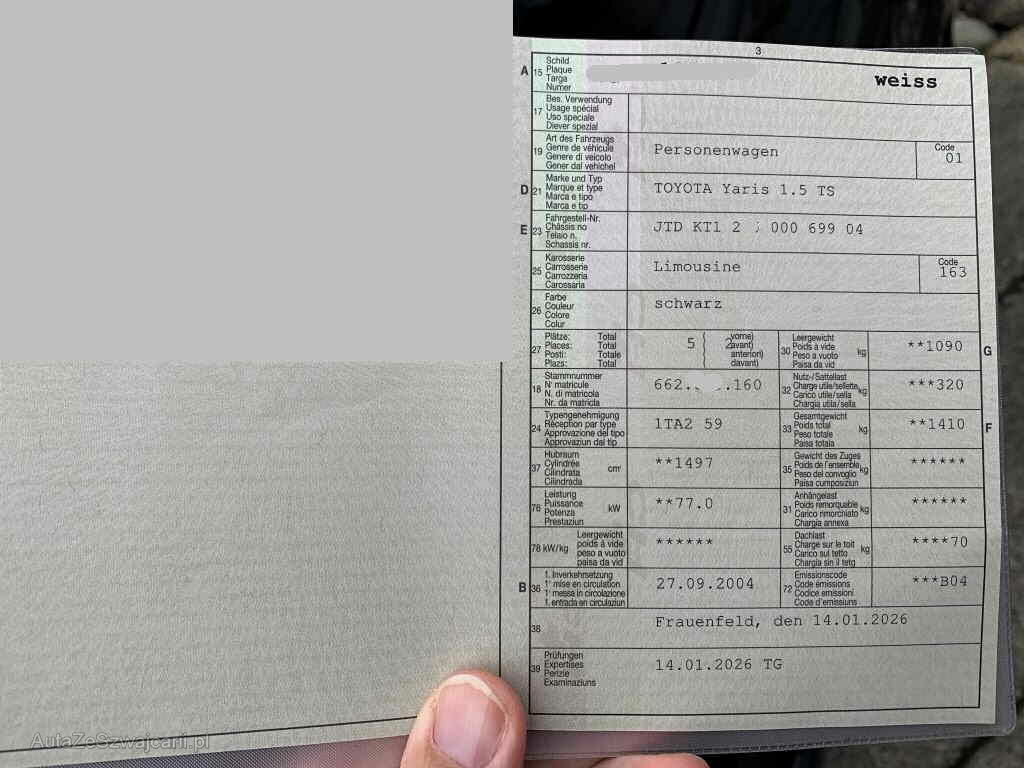 3
A 15 Schild
Plaque
Targa
Numer
weiss
17 Bes. Verwendung
Usage spécial
Uso speciale
Diever spezial
19 Art des Fahrzeugs
Genre de véhicule
Genere di veicolo
Gener dal vehichel
Personenwagen
Code
01
D 21 Marke und Typ
Marque et type
Marca e tipo
Marca e tip
TOYOTA Yaris 1.5 TS
E 23 Fahrgestell-Nr.
Châssis no
Telaio n.
Schassis nr.
JTD KT1 2 000 699 04
25 Karosserie
Carrosserie
Carrozzeria
Carossaria
Limousine
Code
163
26 Farbe
Couleur
Colore
Colur
schwarz
27 Plätze: Total
Places: Total
Posti: Totale
Plazs: Total
5 ( vorne)
2 avant)
anteriori)
( davant)
30 Leergewicht
Poids à vide
Peso a vuoto
Paisa da vid
kg
**1090
G
18 Stammnummer
N° matricule
N. di matricola
Nr. da matricla
662. .160
32 Nutz-/Sattellast
Charge utile/sellette
Carico utile/sella
Chargia utila/sella
kg
***320
24 Typengenehmigung
Réception par type
Approvazione del tipo
Approvaziun dal tip
1TA2 59
33 Gesamtgewicht
Poids total
Peso totale
Paisa totala
kg
**1410
F
37 Hubraum
Cylindrée
Cilindrata
Cilindrada
cm³
**1497
35 Gewicht des Zuges
Poids de l'ensemble
Peso del convoglio
Paisa cumposiziun
kg
******
76 Leistung
Puissance
Potenza
Prestaziun
kW
**77.0
31 Anhängelast
Poids remorquable
Carico rimorchiato
Chargia annexa
kg
******
78 kW/kg Leergewicht
poids à vide
peso a vuoto
paisa da vid
******
55 Dachlast
Charge sur le toit
Carico sul tetto
Chargia sin il tetg
kg
****70
B 36 1. Inverkehrsetzung
1re mise en circulation
1a messa in circolazione
1. entrada en circulaziun
27.09.2004
72 Emissionscode
Code émissions
Codice emissioni
Code d'emissiuns
***B04
38 Frauenfeld, den 14.01.2026
39 Prüfungen
Expertises
Perizie
Examinaziuns
14.01.2026 TG
AutaZeSzwajcarii.pl